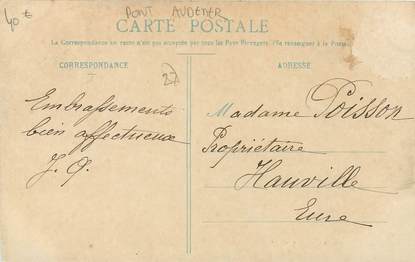 40 €
PONT AUDEMER
CARTE POSTALE
La Correspondance au recto n'est pas acceptée par tous les Pays Étrangers (Se renseigner à la Poste)
CORRESPONDANCE
27
ADRESSE
Embrassements
bien affectueux
J. G.
Madame Poisson
Propriétaire
Hauville
Eure